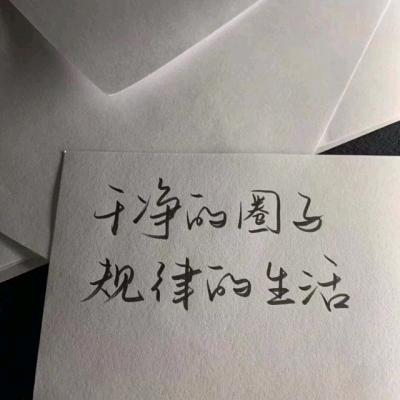 干净的圈子
规律的生活